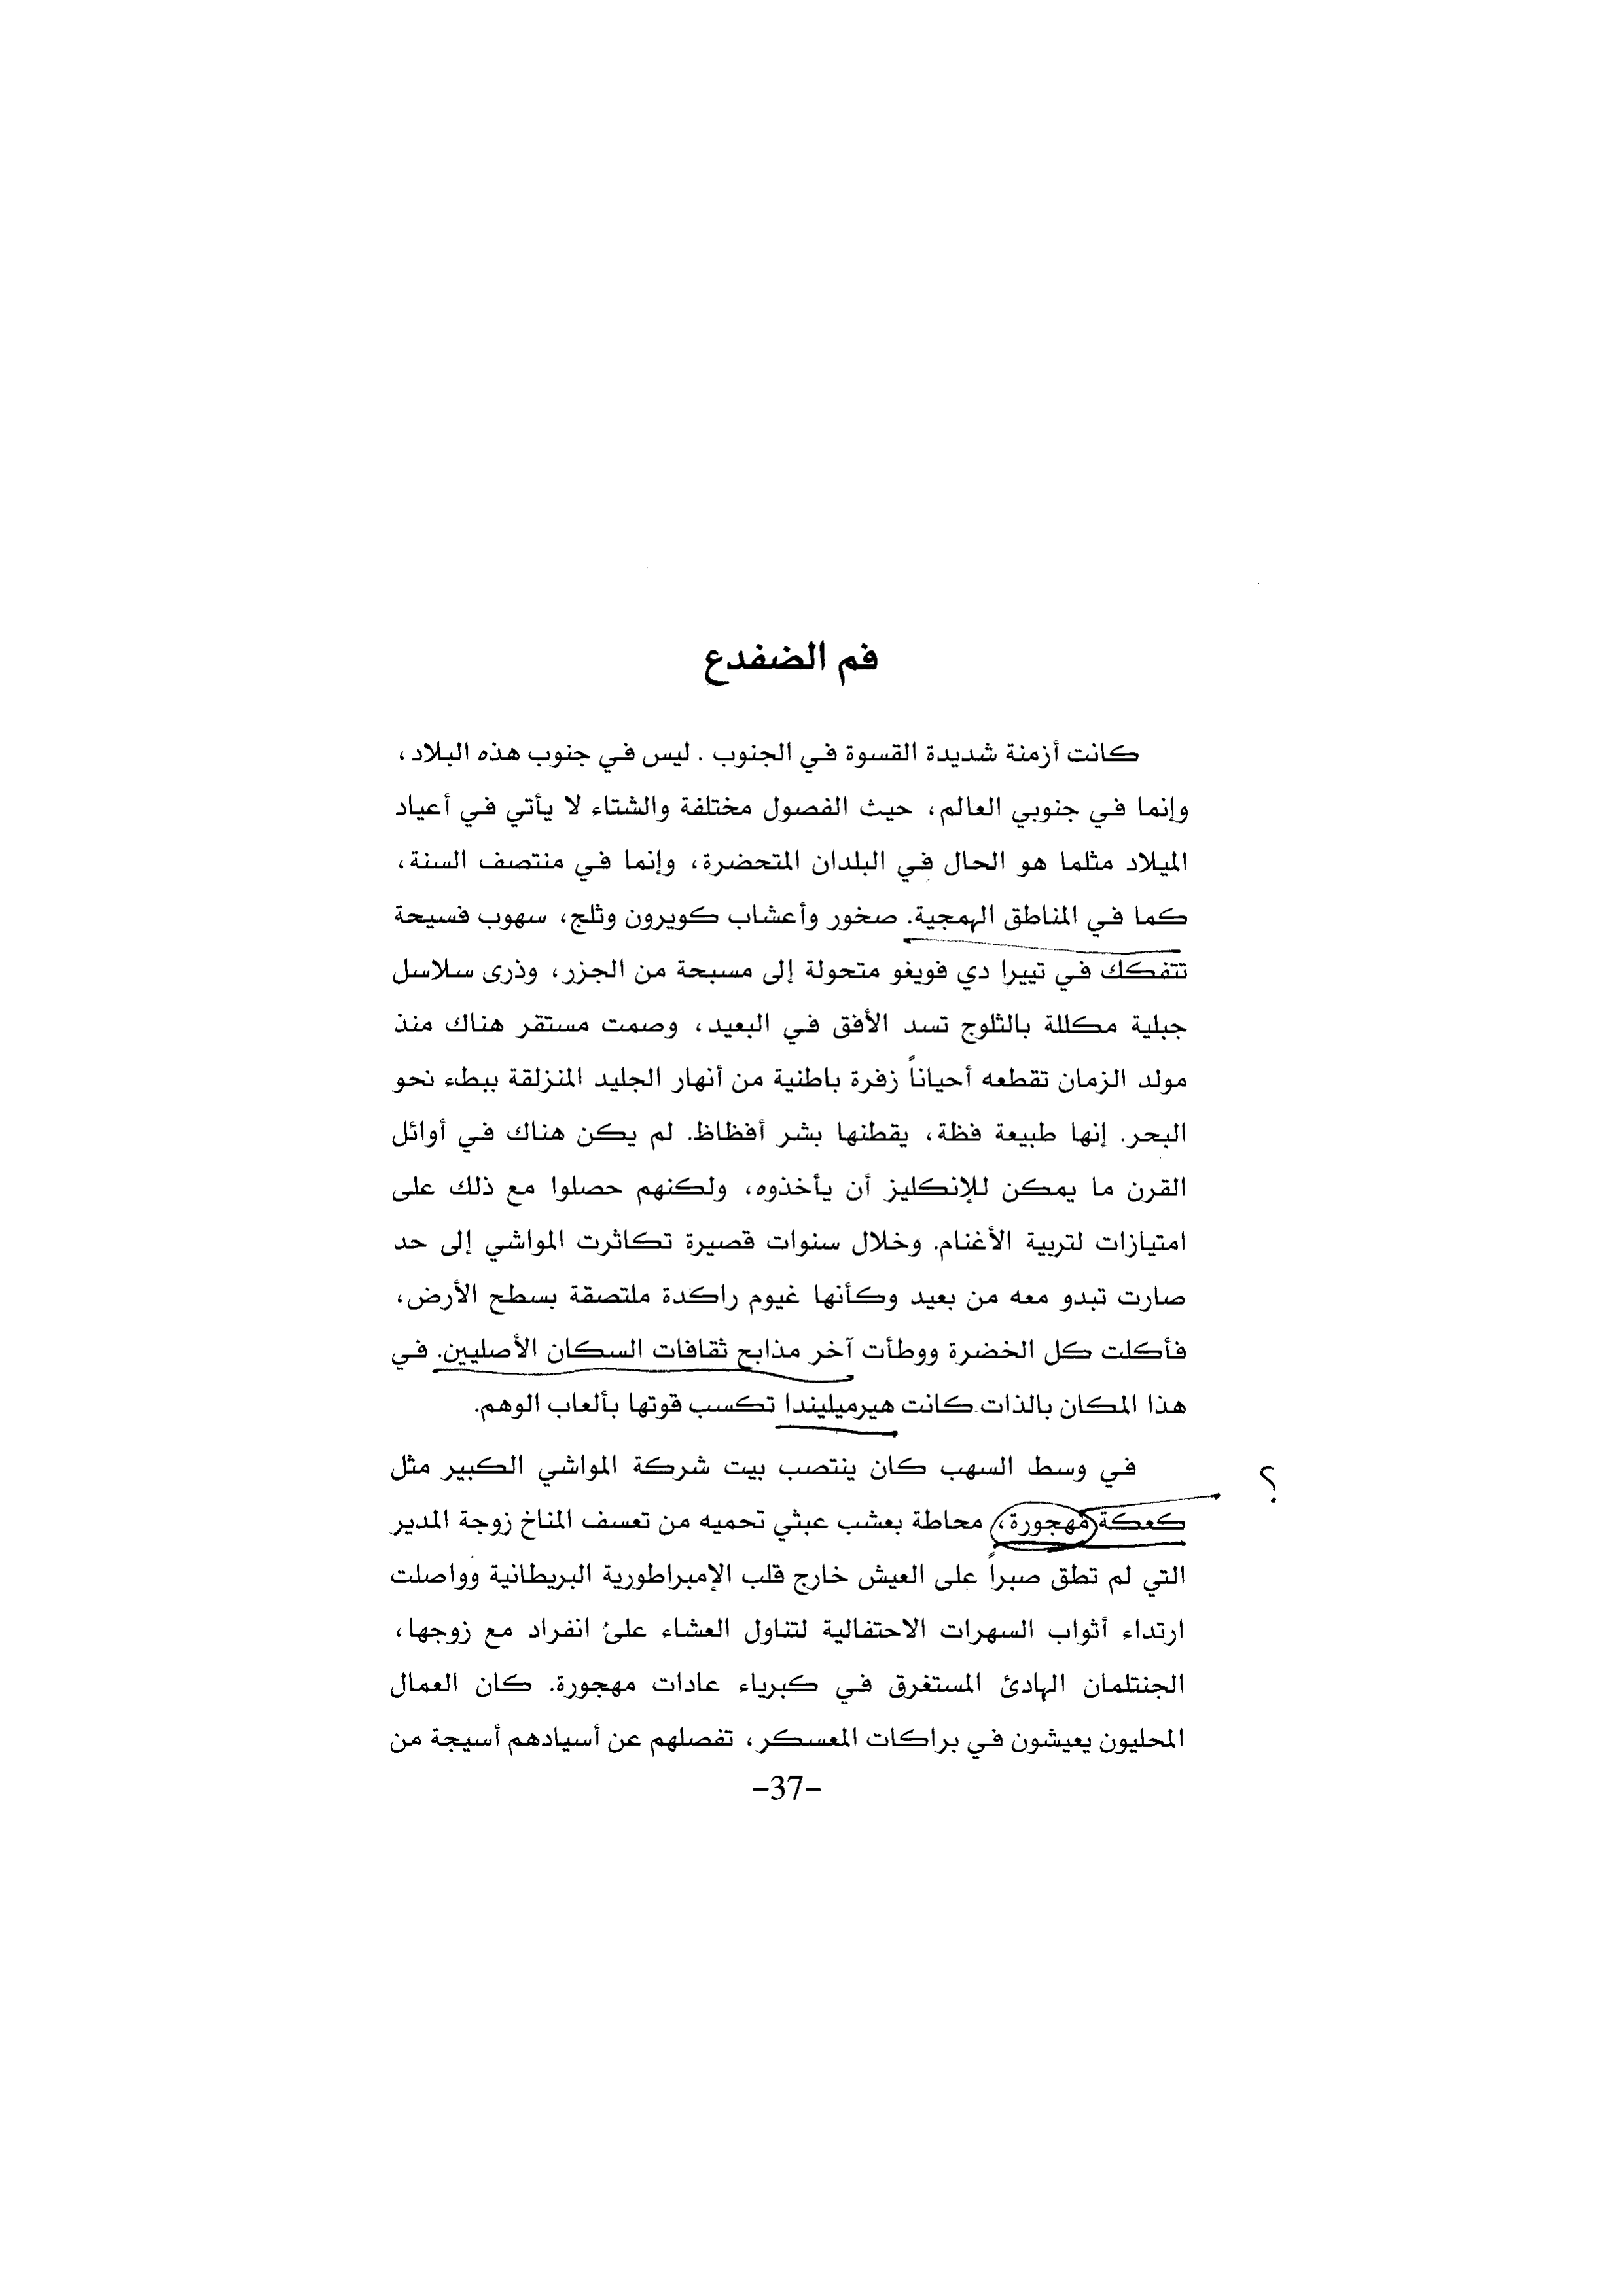 فم الضفدع
كانت أزمنة شديدة القسوة في الجنوب . ليس في جنوب هذه البلاد،
وإنما في جنوبي العالم، حيث الفصول مختلفة والشتاء لا يأتي في أعياد
الميلاد مثلما هو الحال في البلدان المتحضرة، وإنما في منتصف السنة،
كما في المناطق الهمجية. صخور وأعشاب كويرون وثلج، سهوب فسيحة
تتفكك في تييرا دي فويغو متحولة إلى مسبحة من الجزر، وذرى سلاسل
جبلية مكللة بالثلوج تسد الأفق في البعيد، وصمت مستقر هناك منذ
مولد الزمان تقطعه أحياناً زفرة باطنية من أنهار الجليد المنزلقة ببطء نحو
البحر. إنها طبيعة فظة، يقطنها بشر أفظاظ. لم يكن هناك في أوائل
القرن ما يمكن للإنكليز أن يأخذوه، ولكنهم حصلوا مع ذلك على
امتيازات لتربية الأغنام. وخلال سنوات قصيرة تكاثرت المواشي إلى حد
صارت تبدو معه من بعيد وكأنها غيوم راكدة ملتصقة بسطح الأرض،
فأكلت كل الخضرة ووطأت آخر مذابح ثقافات السكان الأصليين. في
هذا المكان بالذات كانت هيرميليندا تكسب قوتها بألعاب الوهم.
في وسط السهب كان ينتصب بيت شركة المواشي الكبير مثل
؟
كعكة مهجورة، محاطة بعشب عبثي تحميه من تعسف المناخ زوجة المدير
التي لم تطق صبراً على العيش خارج قلب الإمبراطورية البريطانية وواصلت
ارتداء أثواب السهرات الاحتفالية لتناول العشاء على انفراد مع زوجها،
الجنتلمان الهادئ المستغرق في كبرياء عادات مهجورة. كان العمال
المحليون يعيشون في براكات المعسكر، تفصلهم عن أسيادهم أسيجة من
-37-